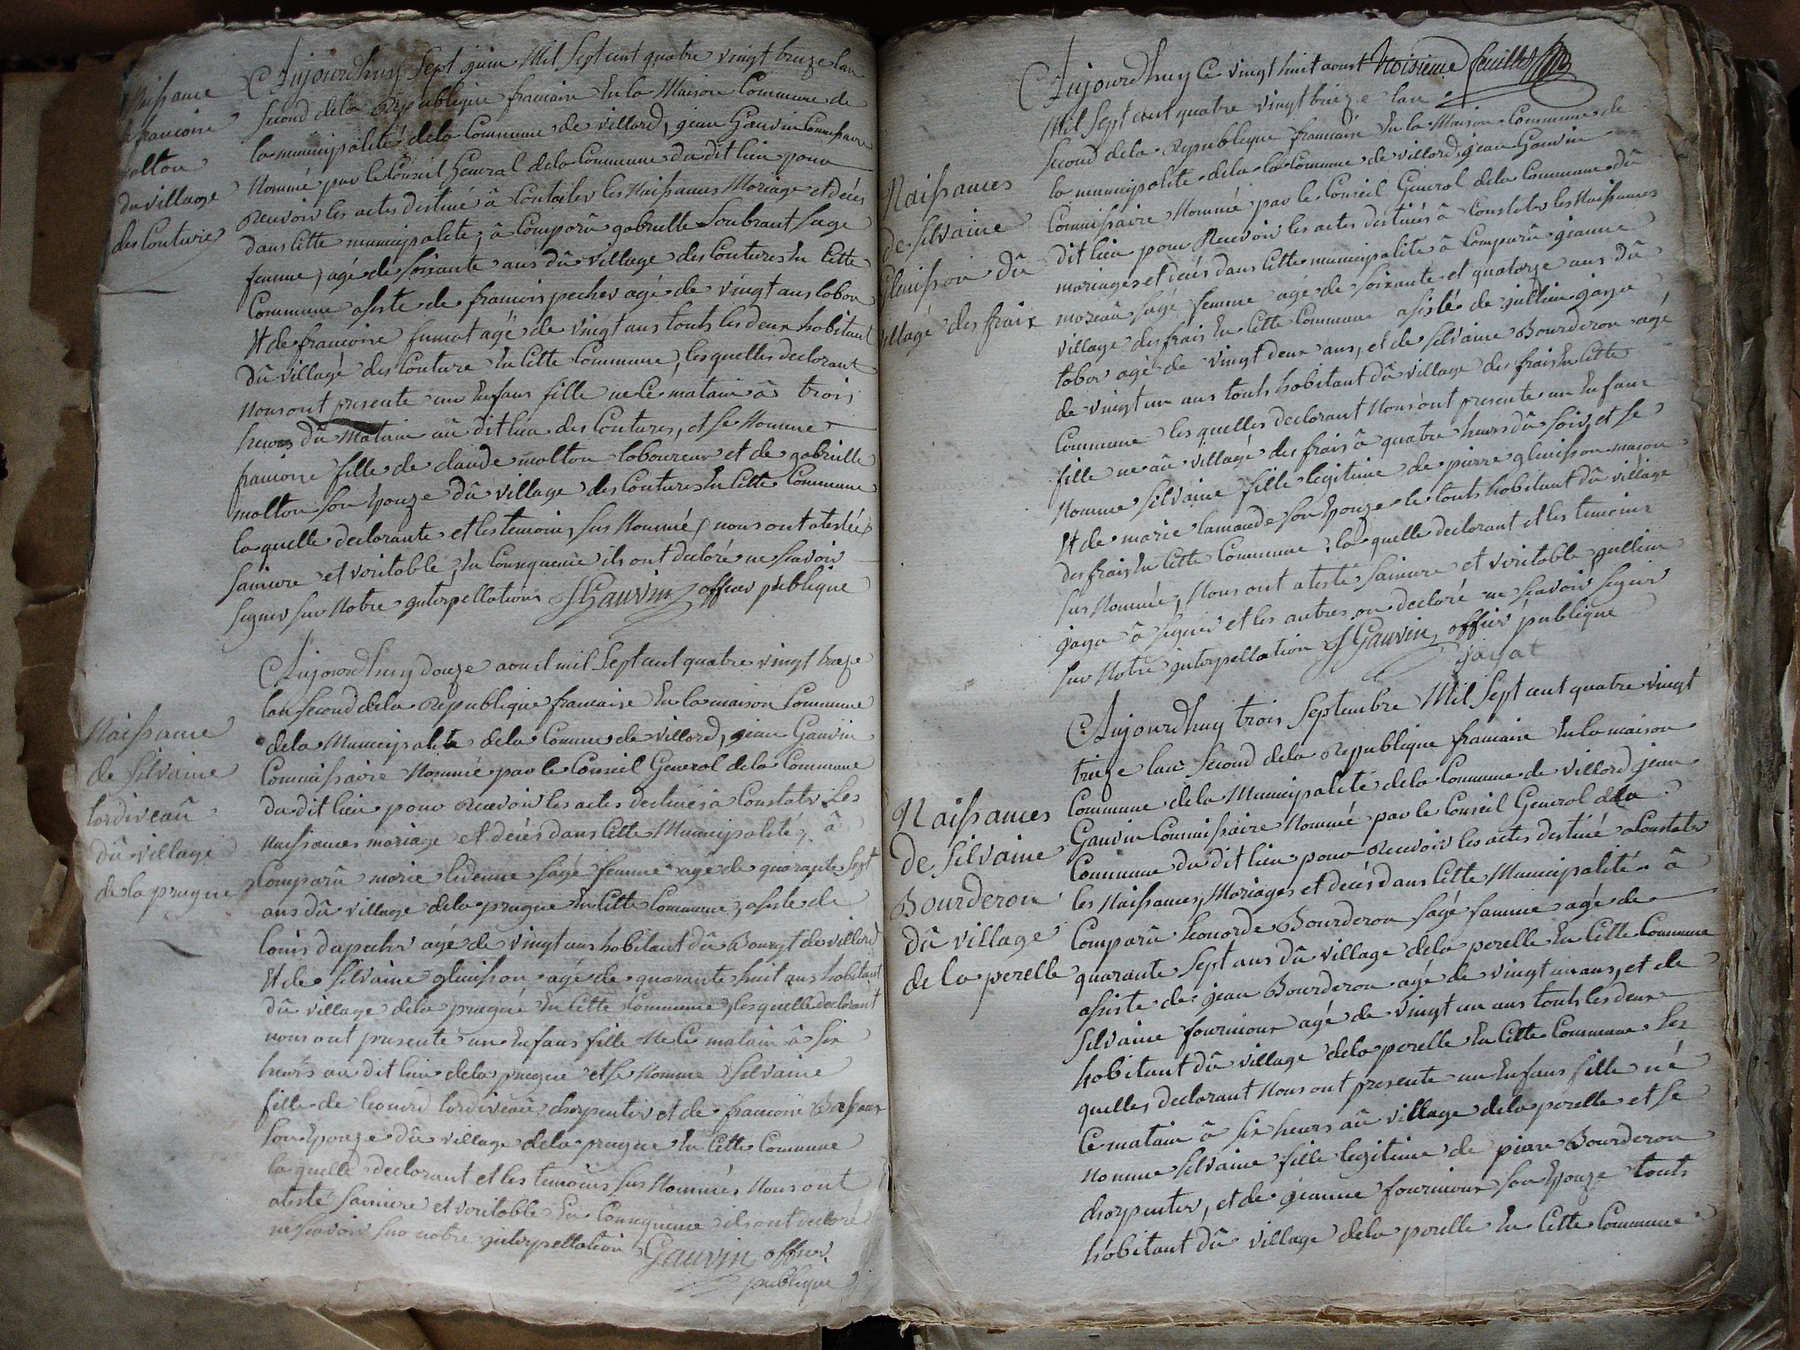 Naissance
de francoise
malton
du village
des Couture
Aujourdhuy Sept juin Mil Sept cent quatre vingt treize lan
second dela Republique francaise En la Maison Commune de
la municipalité dela Commune de villard, jean Gauvin Commissaire
Nommé par le Conseil General dela Commune du dit lieu pour
Recevoir les actes destiné à Constater les Naissances Mariage et décés
dans Cette municipalité, à Comparû gabrielle Soubrant Sage
femme, agé de soixante ans dû village des Coutures En Cette
Commune asisté de francois pecher agé de vingt ans labor
Et de francoise fumat agé de vingt ans touts les deux habitant
dû village des Couture En Cette Commune, lesquelles declarant
Nous ont presente un Enfans fille ne Ce matain à trois
heures dû Matain aû dit lieu des Coutures, et se Nomme
francoise fille de claude malton laboureur et de gabrielle
malton son Epouze dû village des Coutures En Cette Commune
la quelle declarante et les temoins sus Nommé, nous ont atestée
sainsere et veritable, En Consequence ils ont declaré ne scavoir
signer sur Notre interpellations JGauvin officier publique
Naissance
de silvaine
lardiveaû
dû village
de la prugne
Aujourdhuy douze aoust mil Sept cent quatre vingt treze
lan second dela Republique francaise En la maison Commune
dela Municipalité dela Comune de villard, jean Gauvin
Commissaire Nommé par le Conseil General dela Commune
du dit lieu pour Recevoir les actes destinés à Constater Les
Naissances mariage et décés dans Cette Municipalité, à
Comparû marie sage femme agé de quarante Sept
ans dû village dela prugne En Cette Commune, asisté de
louis dapecher agé de vingt ans habitant dû Bourgt de villard
Et de silvaine gluisson agé de quarante huit ans habitant
dû village dela prugne En Cette Commune, lesquelle declarant
nous ont presente un Enfans fille Ne Ce matain à six
heurs au dit lieu dela prugne et se Nomme silvaine
fille de leonard lardiveaû charpentier et de francoise
son Epouze dû village dela prugne En Cette Commune
la quelle declarant et les temoins sus Nommés Nous ont
atesté sainsere et veritable En Consequence ils ont declaré
ne scavoir sur notre interpellation Gauvin officier
publique
troisieme feuillet
Naissances
de silvaine
Gluisson dû
village des frais
Aujourdhuy Ce vingt huit aoust
Mil Sept cent quatre vingt treize lan
second dela Republique francaise En la Maison Commune de
la municipalité dela la Commune de villard, jean Gauvin
Commissaire Nommé par le Conseil General dela Commune dû
dit lieu pour Recevoir les actes destinés à Constater les Naissances
mariages et décés dans Cette municipalité à Comparû jeanne
moreaû sage femme age de soixante et quatorze ans dû
village des frais En Cette Commune asisté de jullien jaya
labor agé de vingt deux ans, et de silvaine Bourderon agé
de vingt un ans touts habitant dû village des frais En Cette
Commune les quelles declarant Nous ont presente un Enfans
fille ne aû village des frais à quatre heurs dû soir, et se
Nomme silvaine fille legitime de pierre gluisson macon
Et de marie lamaude son Epouze le touts habitant dû village
des frais En Cette Commune, la quelle declarant et les temoins
sus Nommée, Nous ont atesté sainsere et veritable jullien
jaya à signer et les autres on declaré ne scavoir signer
sur Notre interpellation JGauvin officier publique
jayat
Naissances
de silvaine
Bourderon
dû village
de la perelle
Aujourdhuy trois Septembre Mil Sept cent quatre vingt
treize lan second dela Republique francaise En la maison
Commune dela Municipalité dela Commune de villard jean
Gauvin Commissaire Nommé par le Conseil General dela
Commune du dit lieu pour Recevoir les actes destiné a Constater
les Naissances, Mariages et décés dans Cette Municipalité à
Comparû leonarde Bourderon sage famme agé de
quarante Sept ans dû village dela perelle En Cette Commune
asiste de jean Bourderon agé de vingt un ans, et de
silvaine fournioux agé de vingt un ans touts les deux
habitant dû village dela perelle En Cette Commune Les
quelles declarant Nous ont presente un Enfans fille né
Ce matain à six heurs aû village dela perelle et se
nomme silvaine fille legitime de piere Bourderon
charpentier, et de jeanne fournioux son Epouze touts
habitant dû village dela perelle En Cette Commune